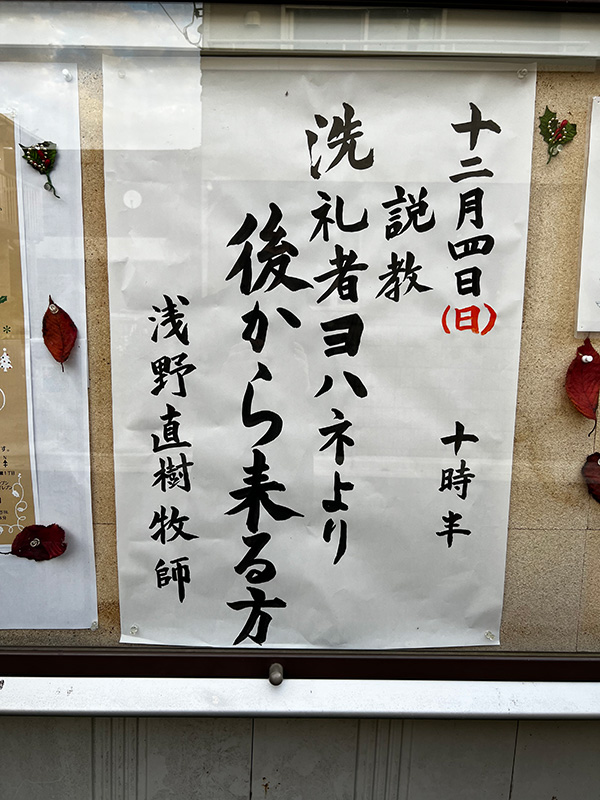 十二月四日(日) 十時半
説教
洗礼者ヨハネより
後から来る方
浅野直樹牧師